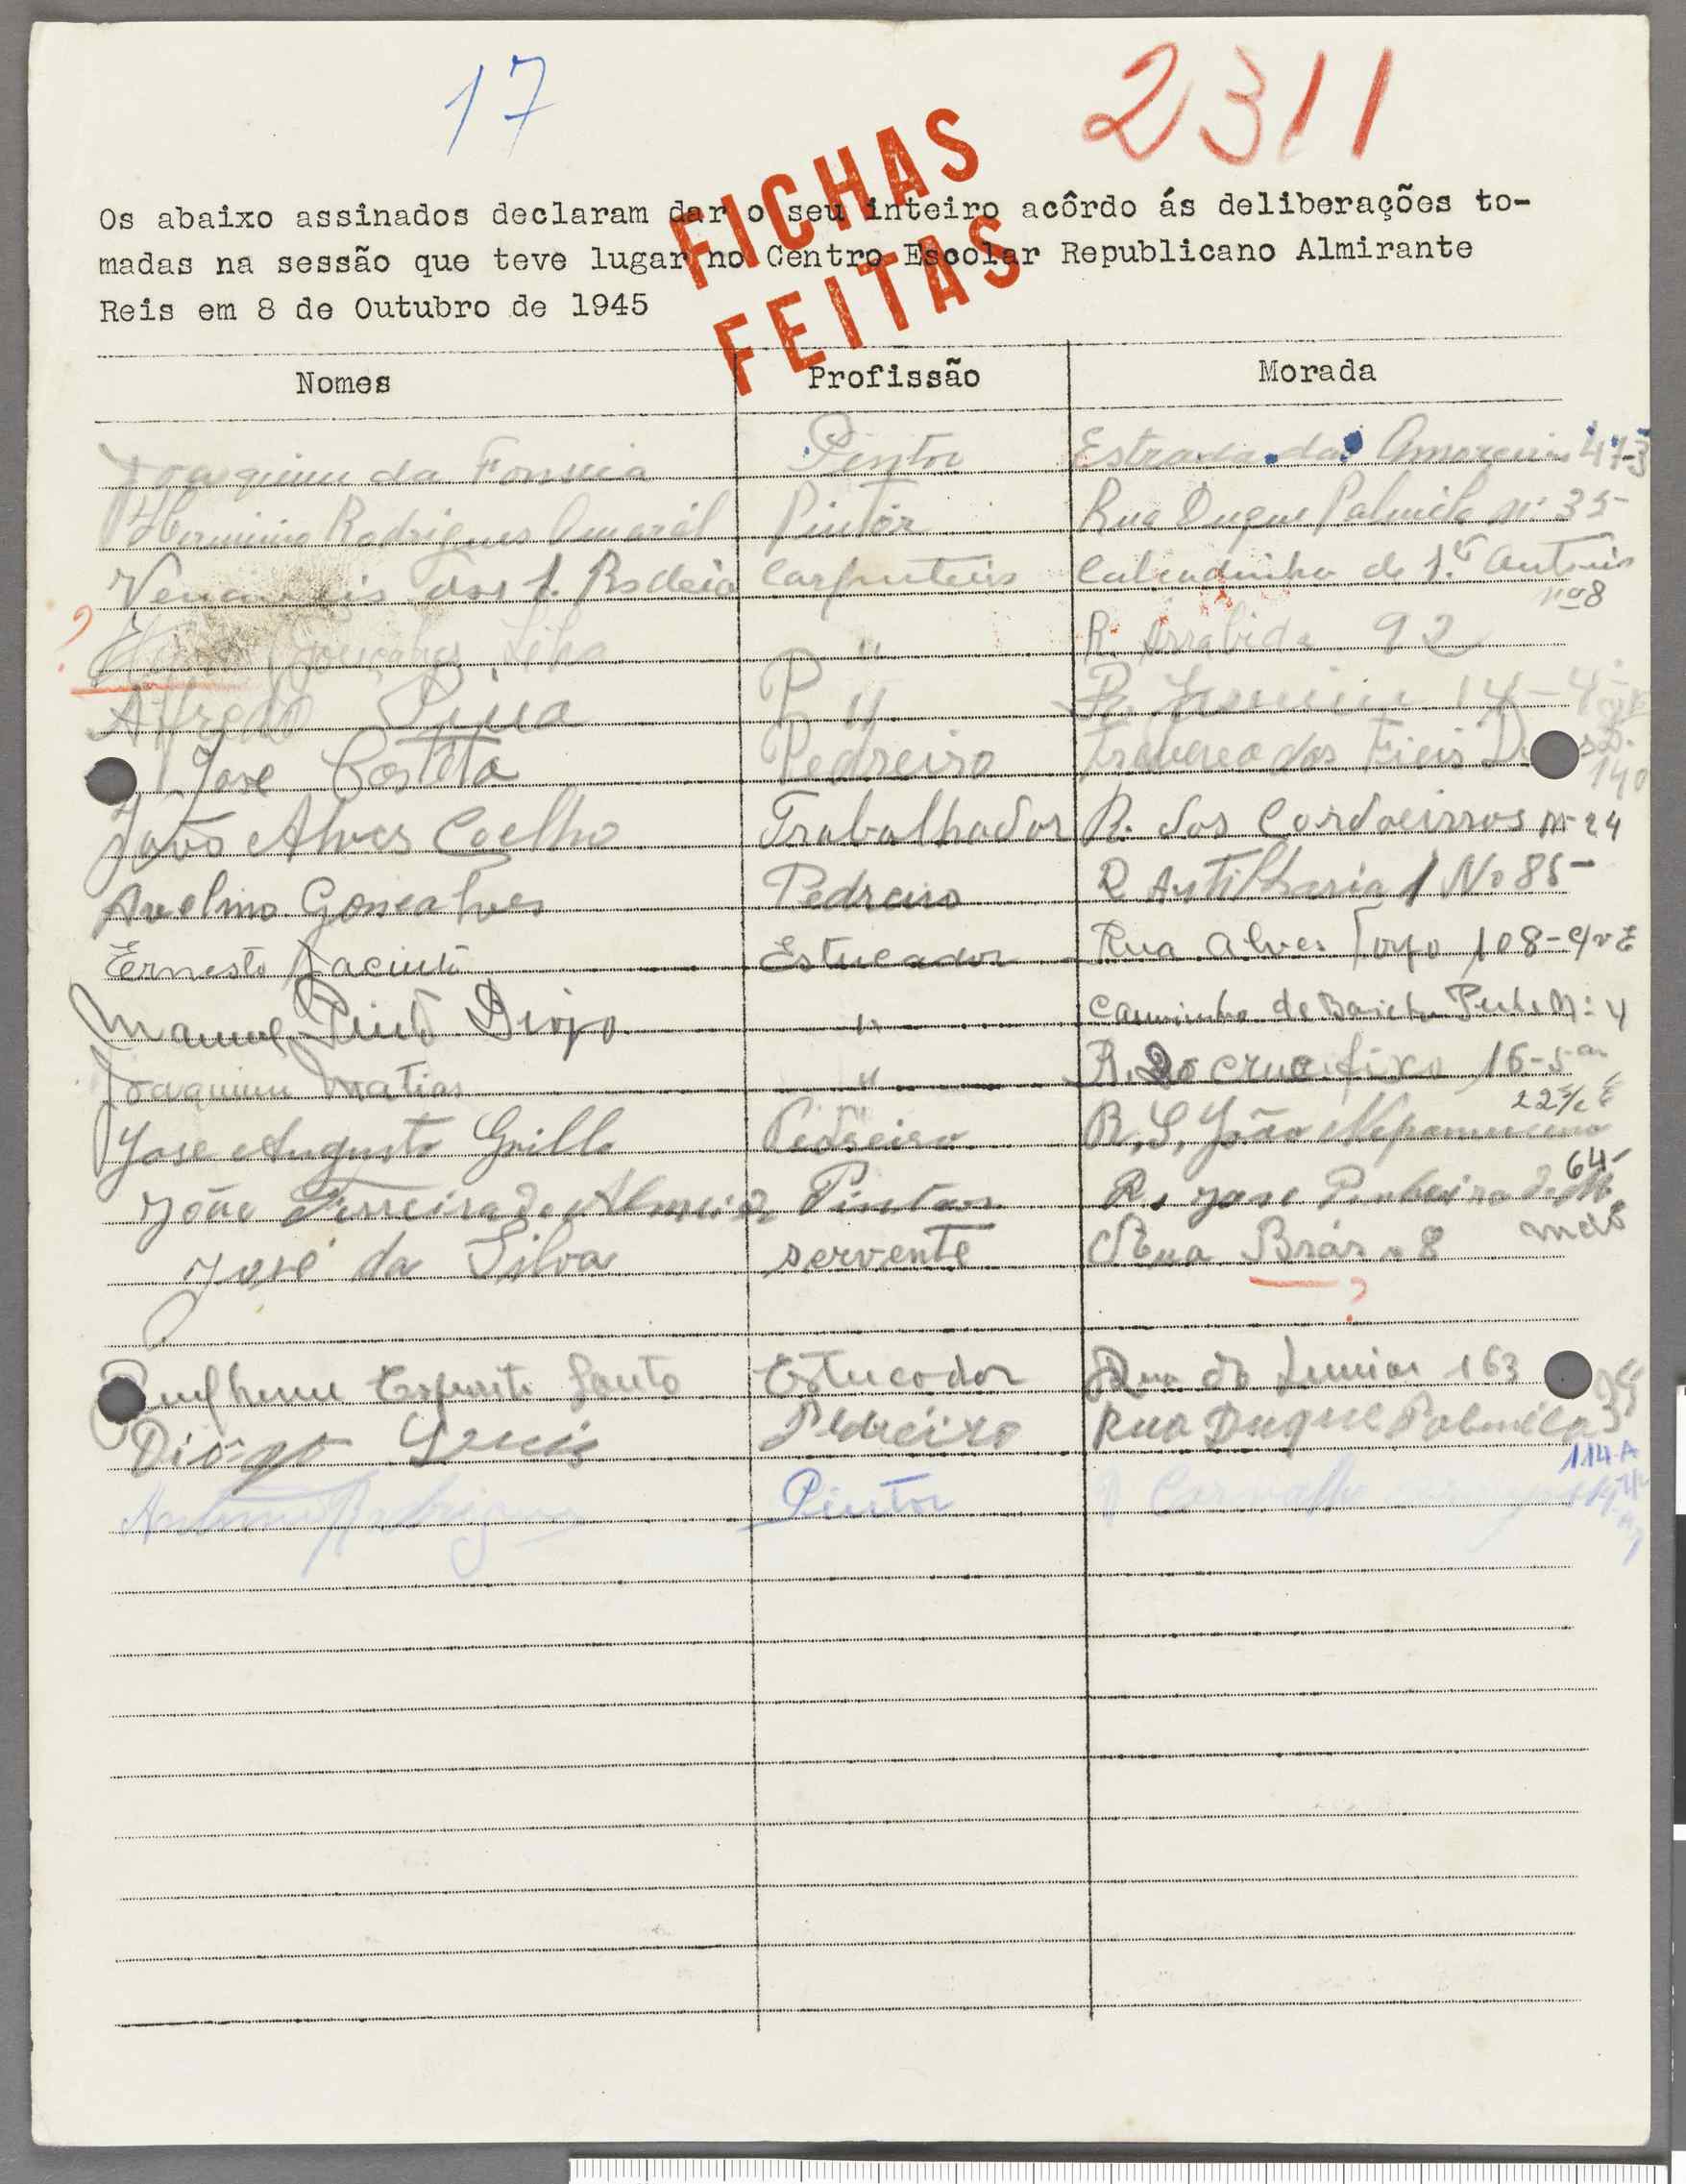 17
2311
FICHAS
FEITAS
Os abaixo assinados declaram dar o seu inteiro acôrdo ás deliberações to-
madas na sessão que teve lugar no Centro Escolar Republicano Almirante
Reis em 8 de Outubro de 1945
Nomes Profissão Morada
Joaquim da Fonseca Pintor Estrada das 47-3
Herminio Rodrigues Amarál Pintôr Rua Duque Palmela nº 35
dos S. Carpinteiro Calçadinha de S.to Antonio
nº 8
? Gonçalves " R. Arrabida 92
Alfredo " R. 14-4º
Jose Costa Pedreiro Travessa dos Fieis D 140
João Alves Coelho Trabalhador R. dos Cordoeirros Nº 24
Avelino Gonçalves Pedreiro R Artilharia 1 No 85
Ernesto Jacinto Estucador Rua Alves Torgo 108-c/v E
Manuel Pinto Diogo " Caminho de Baicho Nº 4
Joaquim Matias " R. do crucifixo 16-5º
22 r/c E
Jose Augusto Grillo Pedreiro R. S. João Nepomuceno
64-
João Ferreira de Almeida Pintor R. Jose Pinheiro de M
melo
José da Silva servente Rua Brás 8
?
Espirito Santo Estucador Rua do 163
Diôgo Luis Pedreiro Rua Duque Palmela 35
114-A
Antonio Rodrigues Pintor R Carvalho